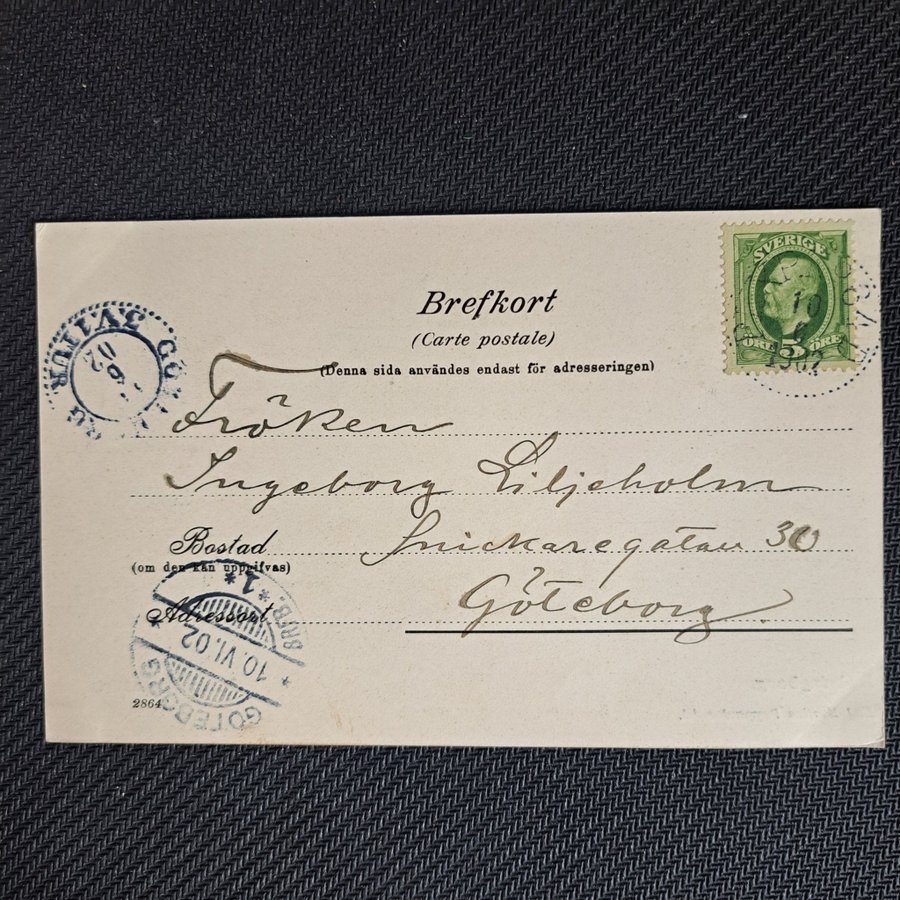 SVERIGE
ÖRE 5 ÖRE
10
6
1902
Brefkort
(Carte postale)
(Denna sida användes endast för adresseringen)
5 V. 1 TUR
6
02
Fröken
Ingeborg Liljeholm
Bostad
(om den kan uppgifvas)
Snickaregatan 30
Adressort
Göteborg
GÖTEBORG
10.VI.02
BRFB.
*1*
2864